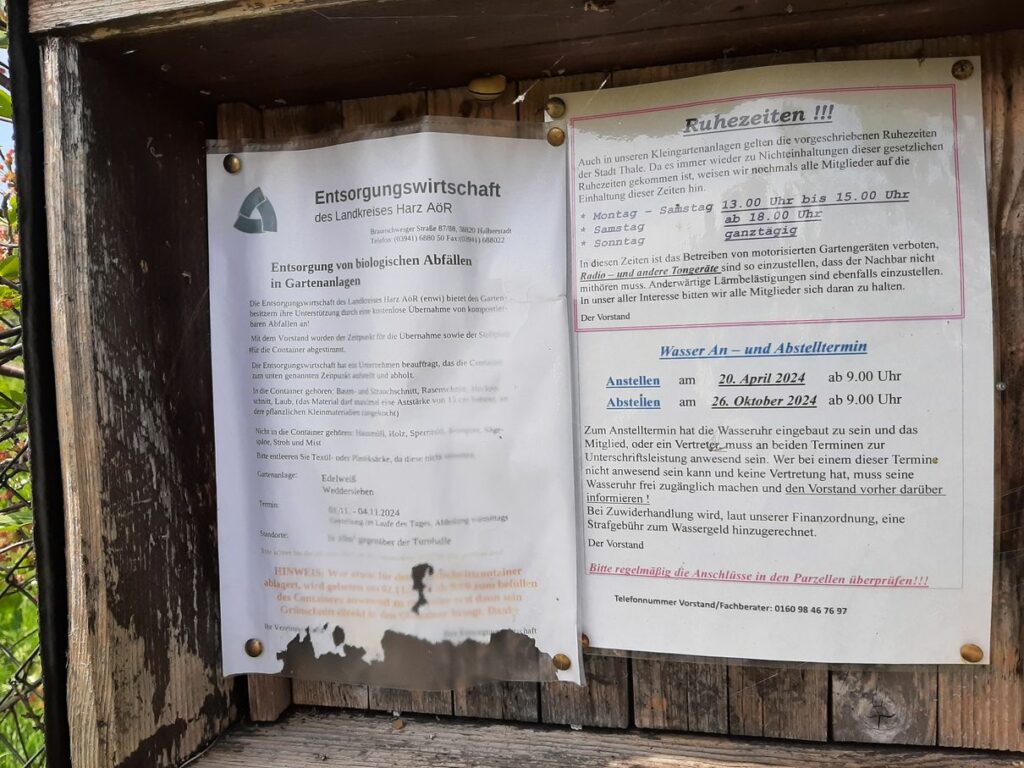 Entsorgungswirtschaft
des Landkreises Harz AöR
Braunschweiger Straße 87/88, 38820 Halberstadt
Telefon: (03941) 6880 50 Fax:(03941) 688022
Entsorgung von biologischen Abfällen
in Gartenanlagen
Die Entsorgungswirtschaft des Landkreises Harz AöR (enwi) bietet den Garten-
besitzern ihre Unterstützung durch eine kostenlose Übernahme von kompostier-
baren Abfällen an!
Mit dem Vorstand wurden der Zeitpunkt für die Übernahme sowie der Stellplatz
für die Container abgestimmt.
Die Entsorgungswirtschaft hat ein Unternehmen beauftragt, das die Container
zum unten genannten Zeitpunkt aufstellt und abholt.
In die Container gehören: Baum- und Strauchschnitt, Rasenschnitt,
schnitt, Laub, (das Material darf maximal eine Aststärke von 15 cm
dere pflanzlichen Kleinmaterialien
Nicht in die Container gehören: Hausmüll, Holz, Sperrmüll,
späne, Stroh und Mist
Bitte entleeren Sie Textil- oder Plastiksäcke, da diese nicht
Gartenanlage: Edelweiß
Weddersleben
Termin: - 04.11.2024
im Laufe des Tages, Abholung vormittags
Standorte: gegenüber der Turnhalle
HINWEIS: Wer etwas für den
ablagert, wird gebeten
des Containers anwesend zu
Grünschnitt direkt
Ihr
Ruhezeiten !!!
Auch in unseren Kleingartenanlagen gelten die vorgeschriebenen Ruhezeiten
der Stadt Thale. Da es immer wieder zu Nichteinhaltungen dieser gesetzlichen
Ruhezeiten gekommen ist, weisen wir nochmals alle Mitglieder auf die
Einhaltung dieser Zeiten hin.
* Montag – Samstag 13.00 Uhr bis 15.00 Uhr
* Samstag ab 18.00 Uhr
* Sonntag ganztägig
In diesen Zeiten ist das Betreiben von motorisierten Gartengeräten verboten,
Radio – und andere Tongeräte sind so einzustellen, dass der Nachbar nicht
mithören muss. Anderwärtige Lärmbelästigungen sind ebenfalls einzustellen.
In unser aller Interesse bitten wir alle Mitglieder sich daran zu halten.
Der Vorstand
Wasser An – und Abstelltermin
Anstellen am 20. April 2024 ab 9.00 Uhr
Abstellen am 26. Oktober 2024 ab 9.00 Uhr
Zum Anstelltermin hat die Wasseruhr eingebaut zu sein und das
Mitglied, oder ein Vertreter muss an beiden Terminen zur
Unterschriftsleistung anwesend sein. Wer bei einem dieser Termine
nicht anwesend sein kann und keine Vertretung hat, muss seine
Wasseruhr frei zugänglich machen und den Vorstand vorher darüber
informieren !
Bei Zuwiderhandlung wird, laut unserer Finanzordnung, eine
Strafgebühr zum Wassergeld hinzugerechnet.
Der Vorstand
Bitte regelmäßig die Anschlüsse in den Parzellen überprüfen!!!
Telefonnummer Vorstand/Fachberater: 0160 98 46 76 97